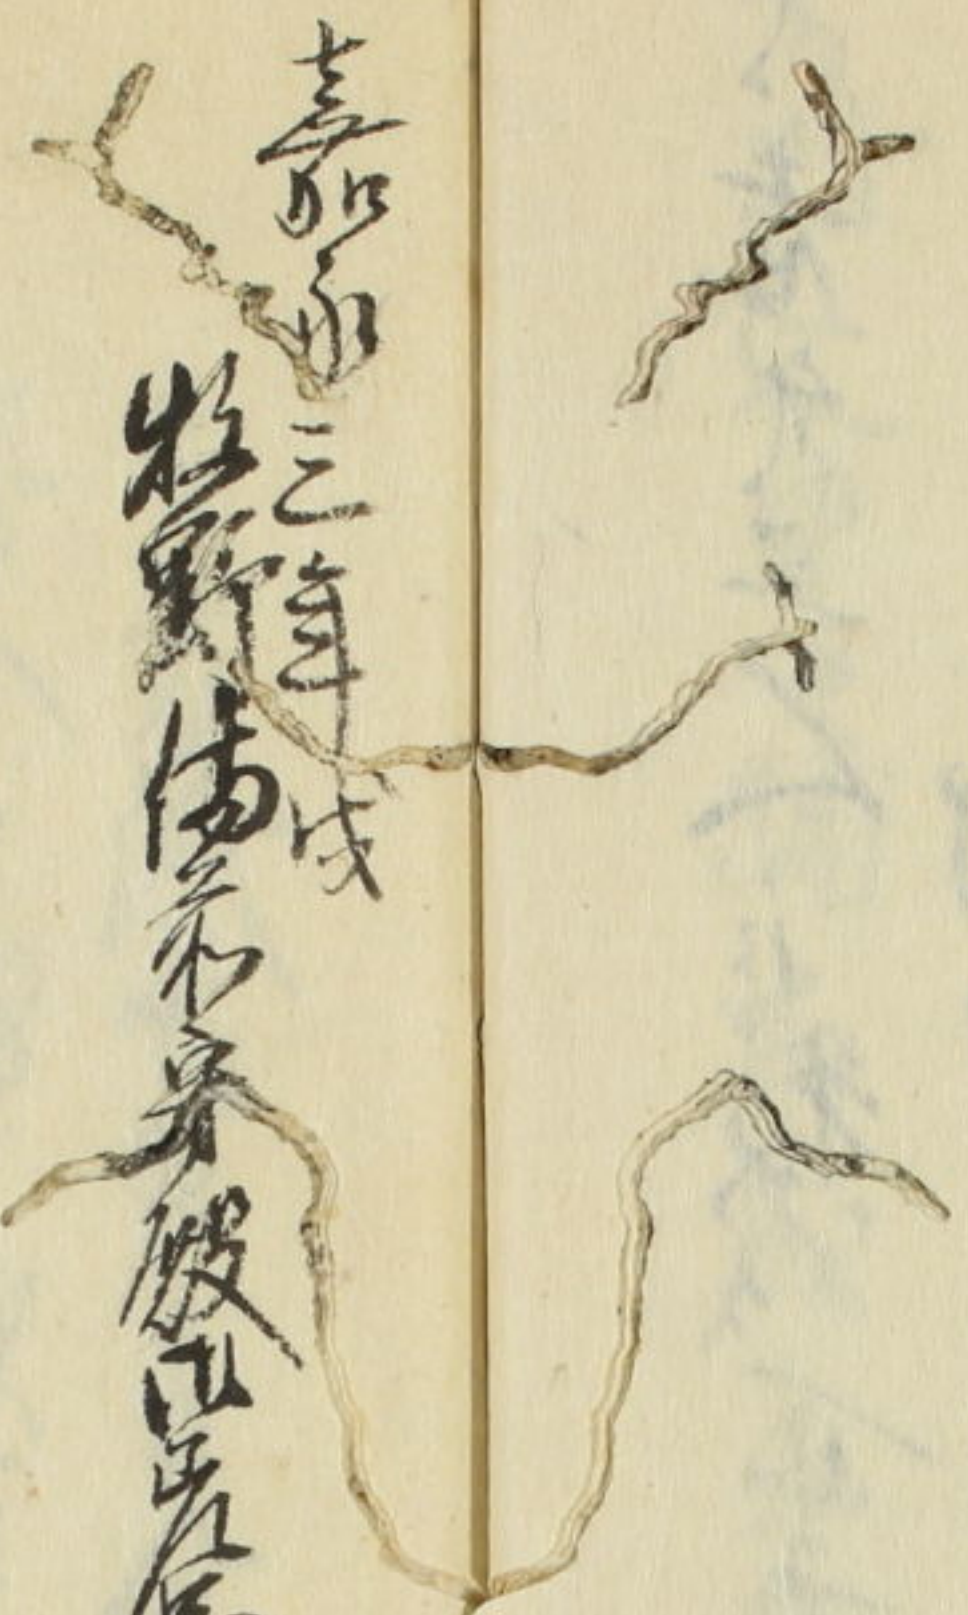 嘉永三年戌
牧野備前守殿御